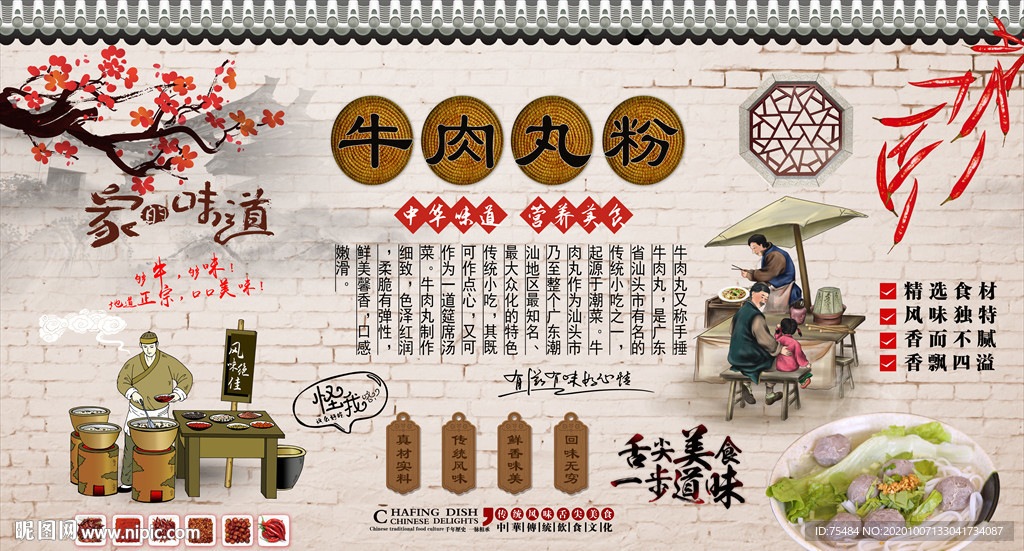 牛肉丸粉
中华味道 营养美食
家的味道
够牛，够味！
地道正宗，口口美味！
牛肉丸又称手捶
牛肉丸，是广东
省汕头市有名的
传统小吃之一，
起源于潮菜。牛
肉丸作为汕头市
乃至整个广东潮
汕地区最知名、
最大众化的特色
传统小吃，其既
可作点心，又可
作为一道筵席汤
菜。牛肉丸制作
细致，色泽红润
，柔脆有弹性，
鲜美馨香，口感
嫩滑。
精选食材
风味独特
香而不腻
香飘四溢
风味绝佳
怪我
有滋有味好心情
真材实料
传统风味
鲜香味美
回味无穷
舌尖美食
一步道味
CHAFING DISH
CHINESE DELIGHTS
传统风味舌尖美食
中華傳統飲食文化
Chinese traditional food culture 千年历史 一脉相承
昵图网 www.nipic.com
ID:75484 NO:20201007133041734087